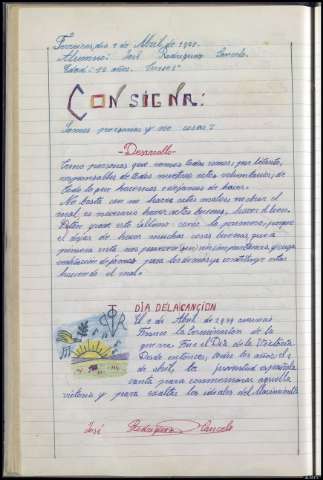 de Abril de
Alumno: José Rodríguez Cancelo.
Edad: 12 años.
CONSIGNA:
Somos personas y no cosas?
-Desarrollo-
Como personas que somos todos somos, por lo tanto,
responsables de todos nuestros actos voluntarios; de
todo lo que hacemos o dejamos de hacer.
No basta con no hacer actos malos no obrar el
mal, es necesario hacer actos buenos, hacer el bien.
grave este último como lo primero, porque
el dejar de hacer muchas cosas buenas, que a
primera vista nos parecen sin importancia, y cuya
para los demás ya constituye estar
haciendo el mal.
DÍA DE LA CANCIÓN
El 1 de Abril de 1939 anuncia
Franco la terminación de la
guerra. Fue el Día de la Victoria
Desde entonces, todos los años el 1
de abril, la juventud española
canta para conmemorar aquella
victoria y para exaltar los ideales del Movimiento
José Rodríguez Cancelo